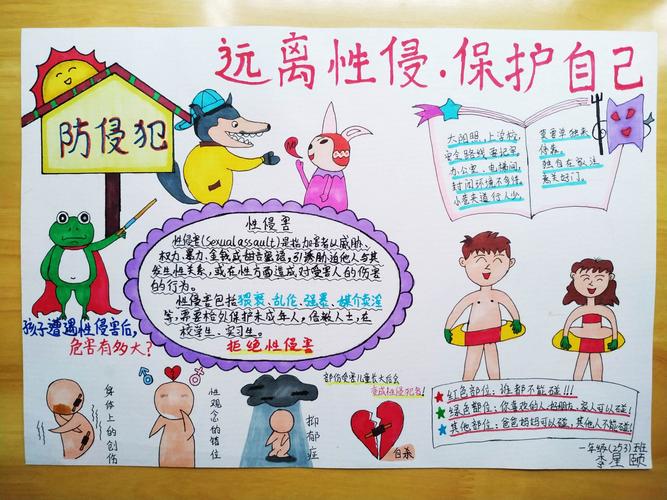 远离性侵·保护自己
防侵犯
太阳照,上学校,
安全路线要记牢,
办公室,电梯间,
封闭环境不多待,
小巷夹道行人少,
要喜单独来
休来。
独自在家,注
意关好门。
性侵害
性侵害(Sexual assault)是指加害者以威胁、
权力、暴力、金钱或甜言蜜语,引诱胁迫他人与其
发生性关系,或在性方面造成对受害人的伤害
的行为。
性侵害包括猥亵、乱伦、强暴、媒介卖淫
等,需要格外保护未成年人,
校学生、实习生。
拒绝性侵害
孩子遭遇性侵害后,
危害有多大?
身体上的创伤
性观念的错位
抑郁症
部份受害儿童长大后会
变成性侵犯者!
自杀
红色部位:谁都不能碰!!!
绿色部位:你喜欢的人、好朋友、家人可以碰!
其他部位:爸爸妈妈可以碰,其他人不可以!
一年级(253)班
李星颐